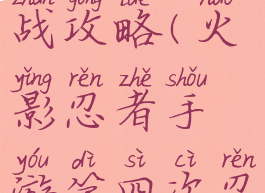 zhàn gōng lüè huǒ
战攻略(火
yǐng rěn zhě shǒu
影忍者手
yóu dì sì cì rěn
游第四次忍